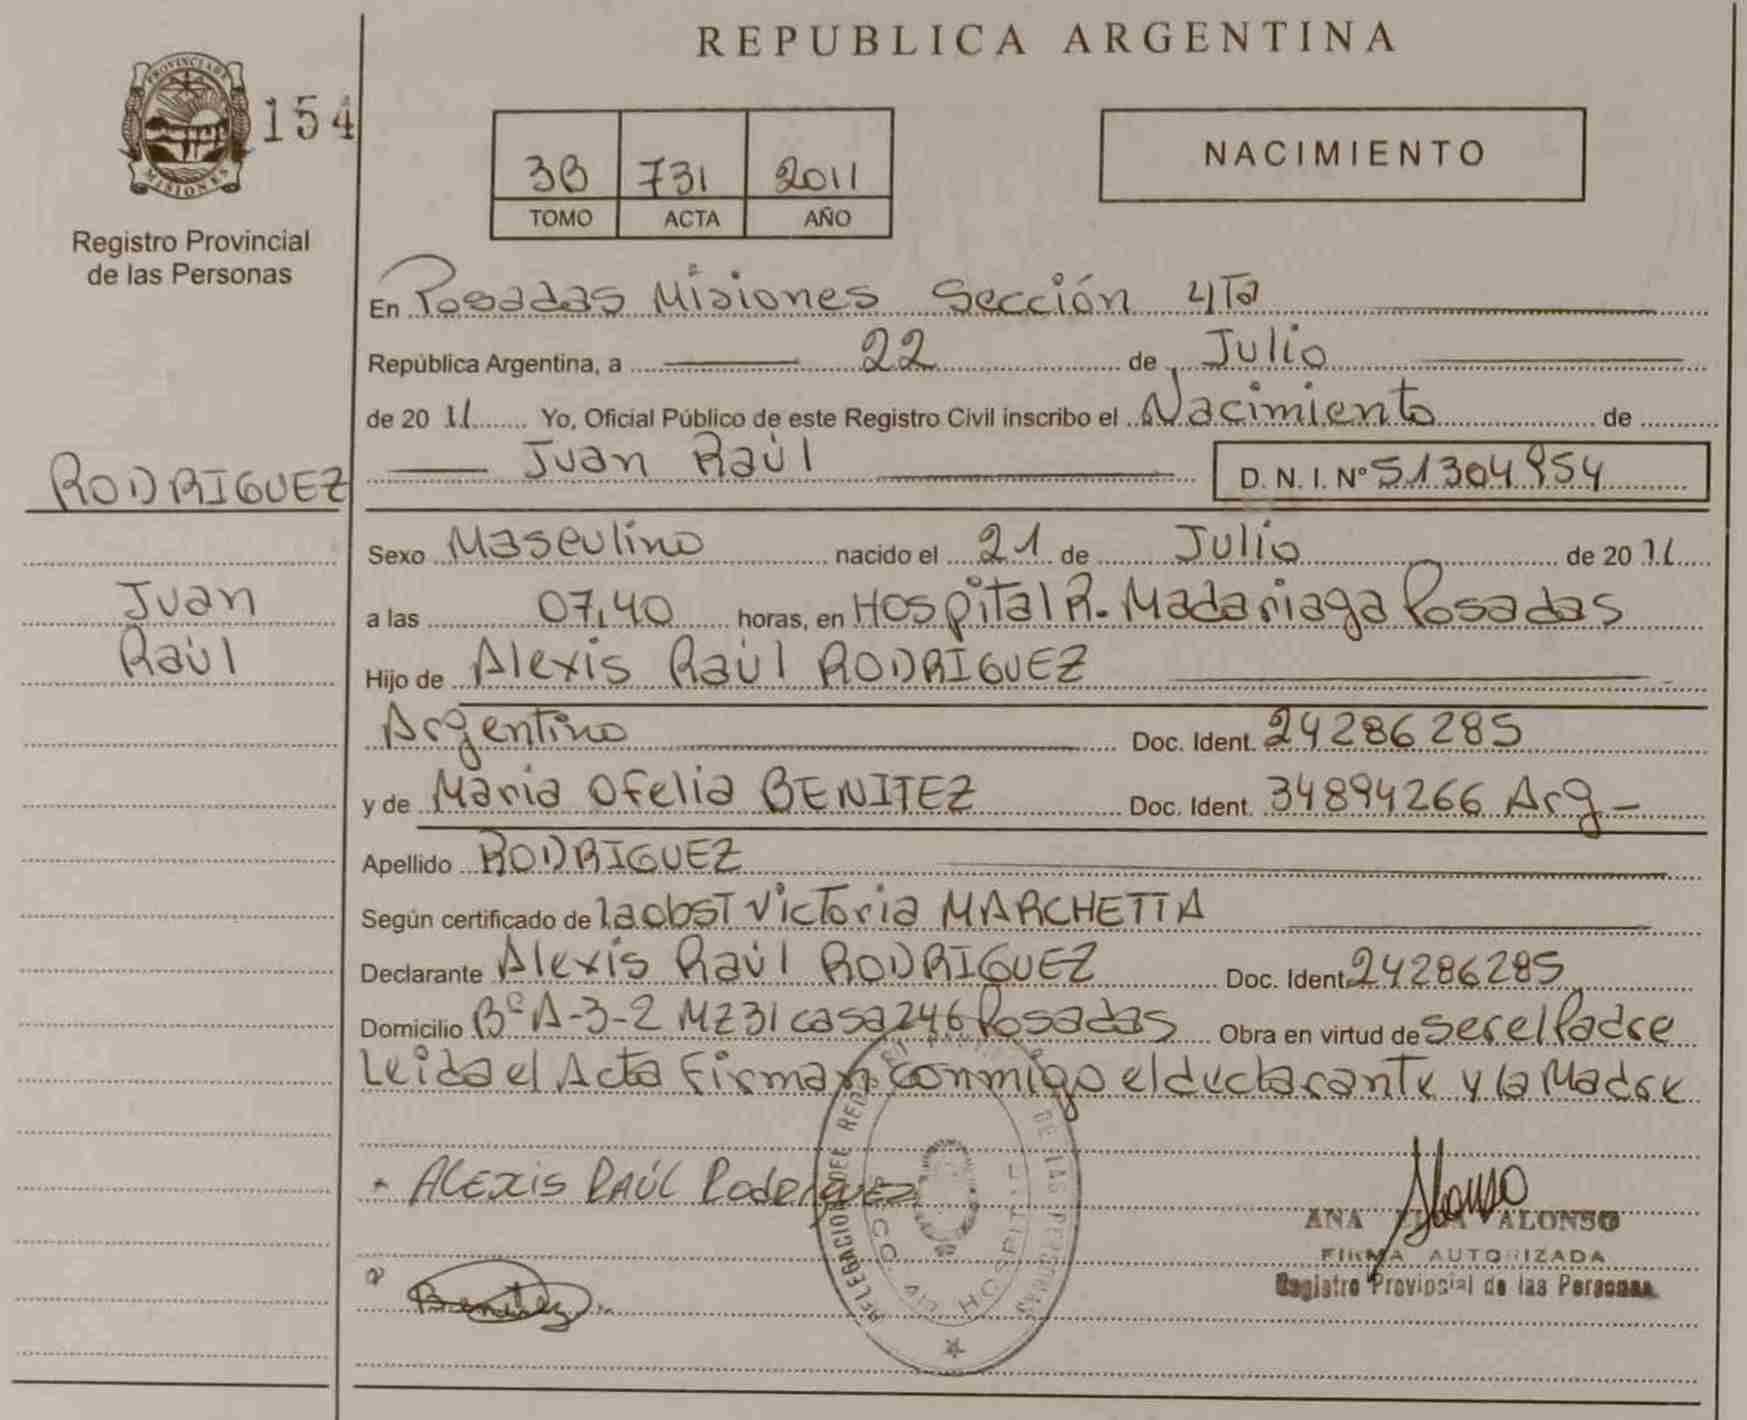 REPUBLICA ARGENTINA
PROVINCIA DE
MISIONES
154
Registro Provincial
de las Personas
3B 731 2011
TOMO ACTA AÑO
NACIMIENTO
En Posadas Misiones Sección 4Ta
República Argentina, a 22 de Julio
de 2011 Yo, Oficial Público de este Registro Civil inscribo el Nacimiento de
Juan Raúl D. N. I. Nº 51304954
RODRIGUEZ
Juan
Raúl
Sexo Masculino nacido el 21 de Julio de 2011
a las 07,40 horas, en Hospital R. Madariaga Posadas
Hijo de Alexis Raúl RODRIGUEZ
Argentino Doc. Ident. 24286285
y de Maria Ofelia BENITEZ Doc. Ident. 34894266 Arg-
Apellido RODRIGUEZ
Según certificado de la obst Victoria MARCHETTA
Declarante Alexis Raúl RODRIGUEZ Doc. Ident. 24286285
Domicilio Bº A-3-2 MZ31 casa 246 Posadas Obra en virtud de ser el Padre
Leida el Acta Firman conmigo el declarante y la Madre
ALEXIS RAÚL Rodriguez
Benitez
DELEGACION DEL DE LAS PERSONAS
HOSPITAL
Alonso
ANA ALONSO
FIRMA AUTORIZADA
Registro Provincial de las Personas